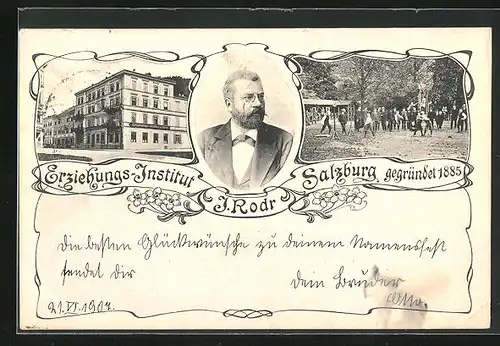 Erziehungs-Institut
J. Rodr
Salzburg gegründet 1885
Die besten Glückwünsche zu deinem Namensfest
sendet dir
dein Bruder
Otto.
21.VI.1904.